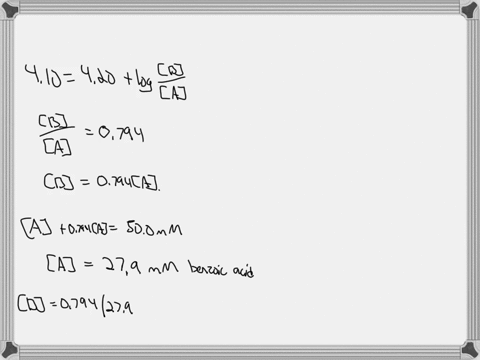 4.10 = 4.20 + log [B]/[A]
[B]/[A] = 0.794
[B] = 0.794[A].
[A] + 0.794[A] = 50.0 mM
[A] = 27.9 mM benzoic acid
[B] = 0.794(27.9